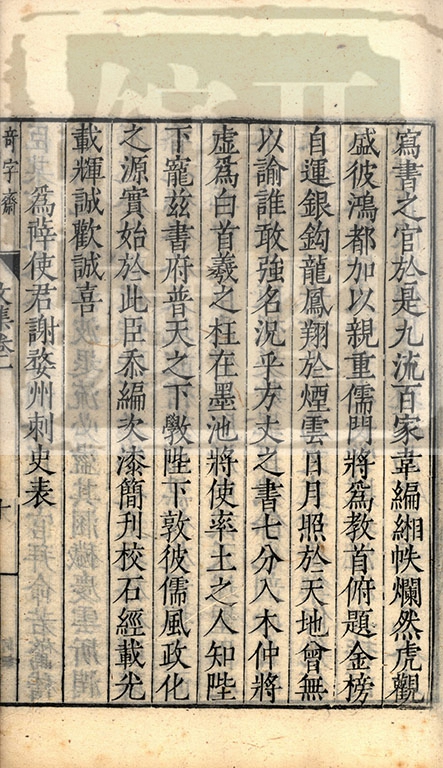 寫書之官於是九流百家韋編緗帙爛然虎觀
盛彼鴻都加以親重儒門將爲教首俯題金榜
自運銀鈎龍鳳翔於煙雲日月照於天地曾無
以諭誰敢強名況乎方丈之書七分入木仲將
虛爲白首羲之枉在墨池將使率土之人知陛
下寵茲書府普天之下斆陛下敦彼儒風政化
之源實始於此臣忝編次漆簡刊校石經載光
載輝誠歡誠喜
爲薛使君謝婺州刺史表
奇字齋
文集卷一